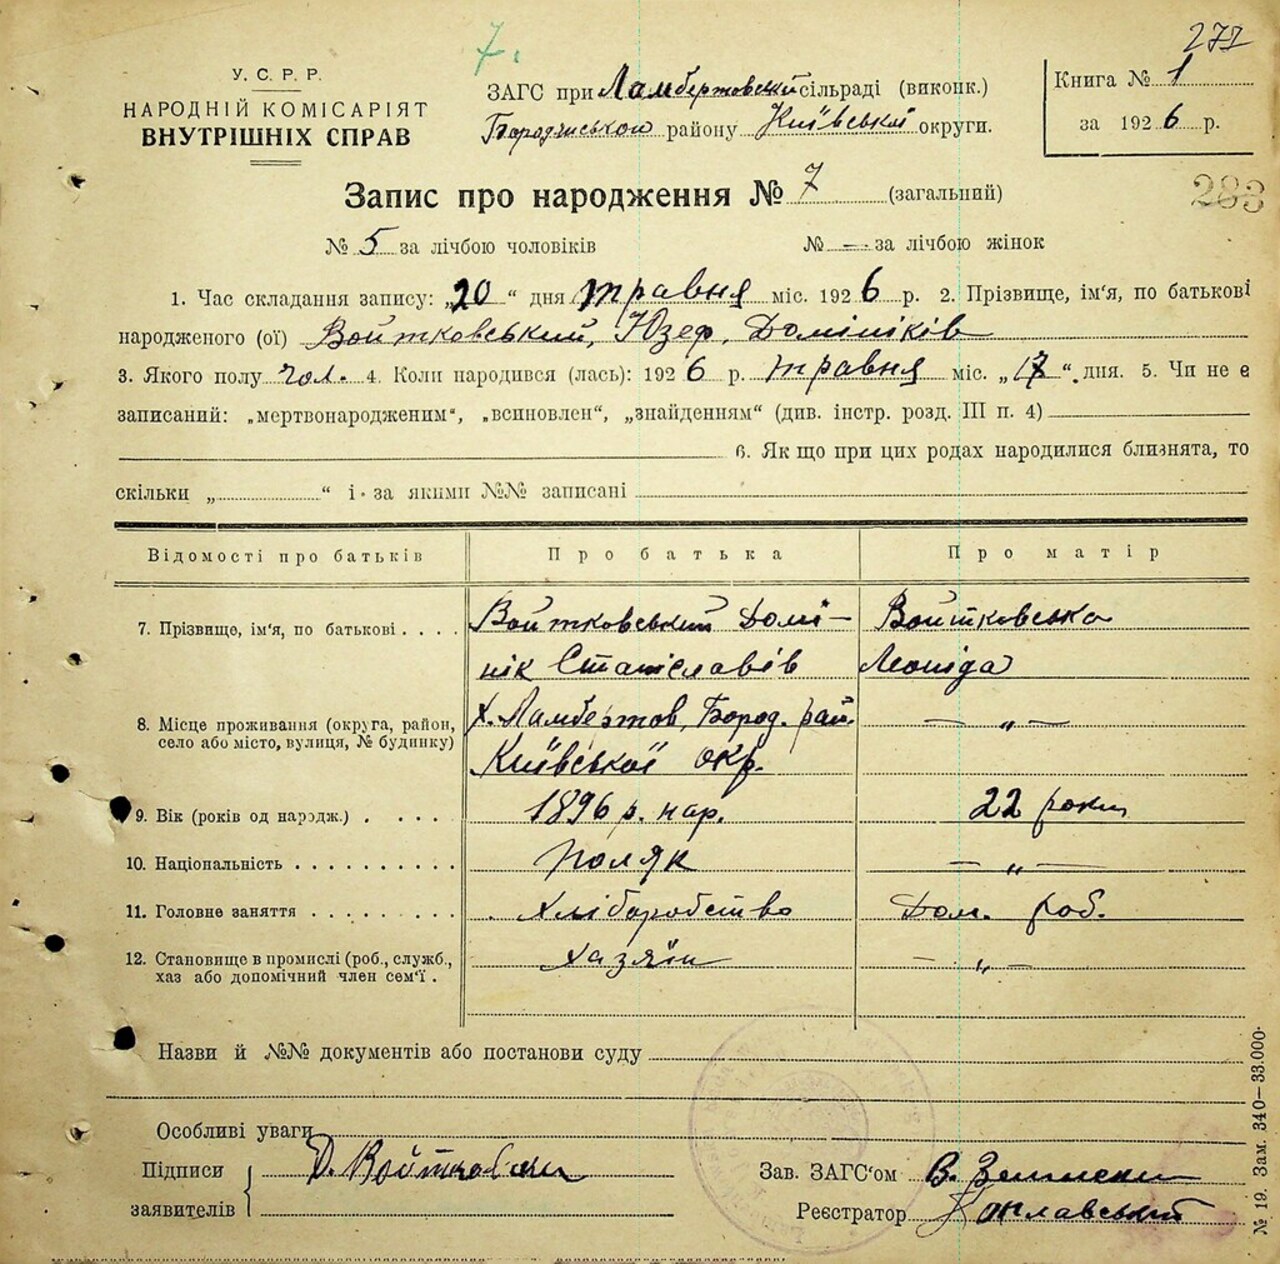 277
7.
У. С. Р. Р.
НАРОДНІЙ КОМІСАРІЯТ
ВНУТРІШНІХ СПРАВ
ЗАГС при Ламбертовській сільраді (виконк.)
Бородянського району Київської округи.
Книга № 1
за 1926 р.
283
Запис про народження № 7 (загальний)
№ 5 за лічбою чоловіків № — за лічбою жінок
1. Час складання запису: „20“ дня травня міс. 1926 р. 2. Прізвище, ім'я, по батькові
народженого (ої) Войтковський, Юзеф, Домініків
3. Якого полу чол. 4. Коли народився (лась): 1926 р. травня міс. „17“ дня. 5. Чи не є
записаний: „мертвонародженим“, „всиновлен“, „знайденням“ (див. інстр. розд. III п. 4)
6. Як що при цих родах народилися близнята, то
скільки „ “ і за якими №№ записані
Відомості про батьків Про батька Про матір
7. Прізвище, ім'я, по батькові . . . . Войтковський Домі- Войтковська
нік Станіславів Леоніда
8. Місце проживання (округа, район, Х. Ламбертов, Бород. рай. — „ —
село або місто, вулиця, № будинку) Київської окр.
9. Вік (років од народж.) . . . . 1896 р. нар. 22 роки
10. Національність . . . . . . . . . . поляк — „ —
11. Головне заняття . . . . . . . . . Хліборобство Дом. роб.
12. Становище в промислі (роб., служб., хазяїн — „ —
хаз або допомічний член сем'ї .
Назви й №№ документів або постанови суду
Особливі уваги
Підписи Д. Войтковски Зав. ЗАГС'ом В.
заявителів Реєстратор
№ 19. Зам. 340—33.000.